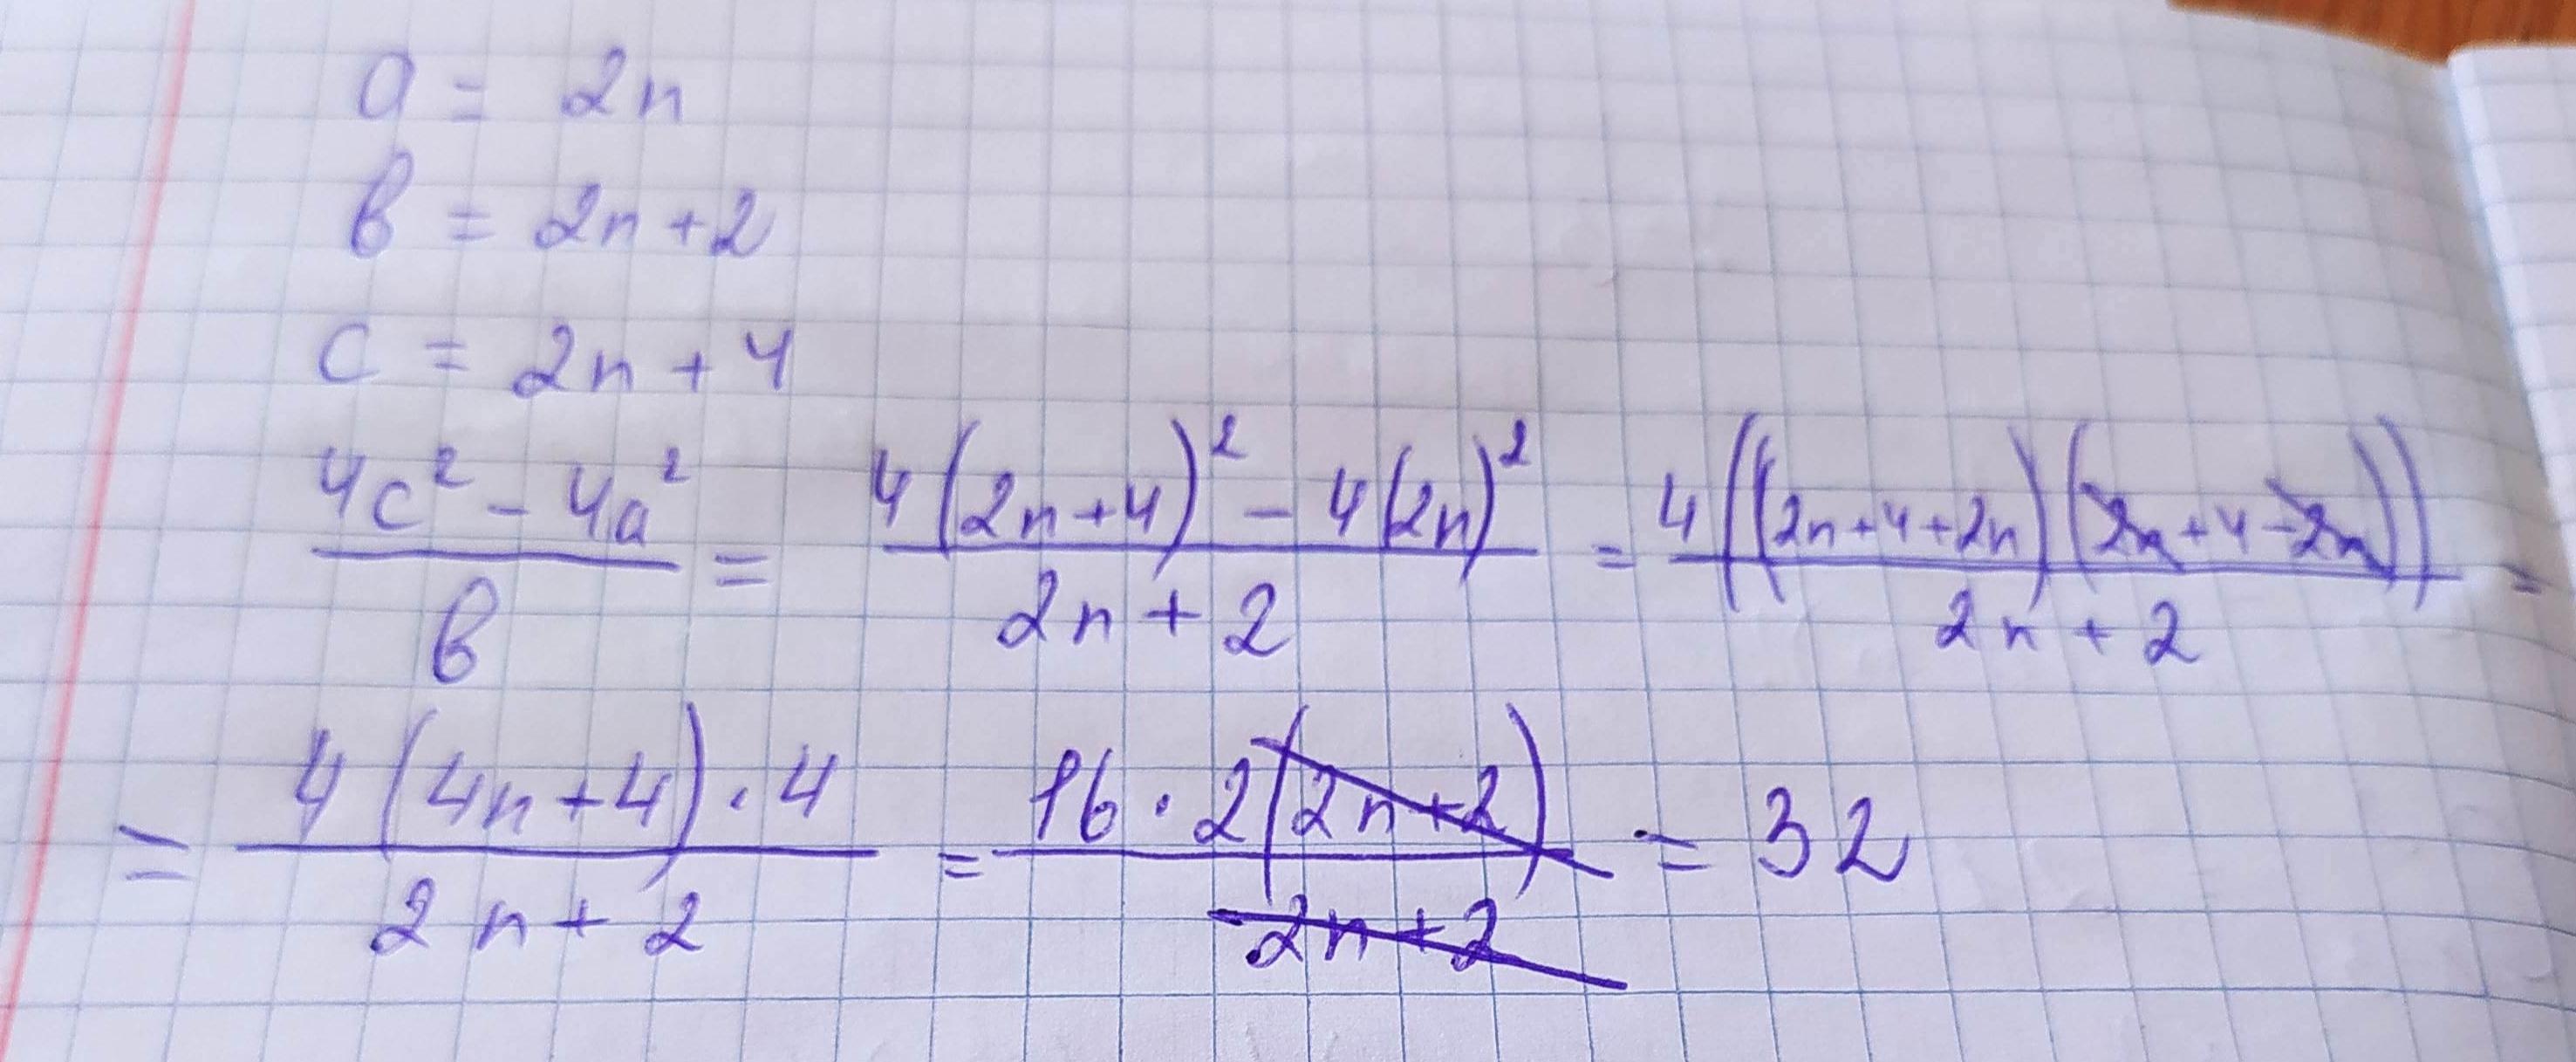 a = 2n
b = 2n+2
c = 2n+4
(4c² - 4a²)/b = (4(2n+4)² - 4(2n)²)/(2n+2) = (4((2n+4+2n)(2n+4-2n)))/(2n+2) =
= (4(4n+4)·4)/(2n+2) = (16·2(2n+2))/(2n+2) = 32